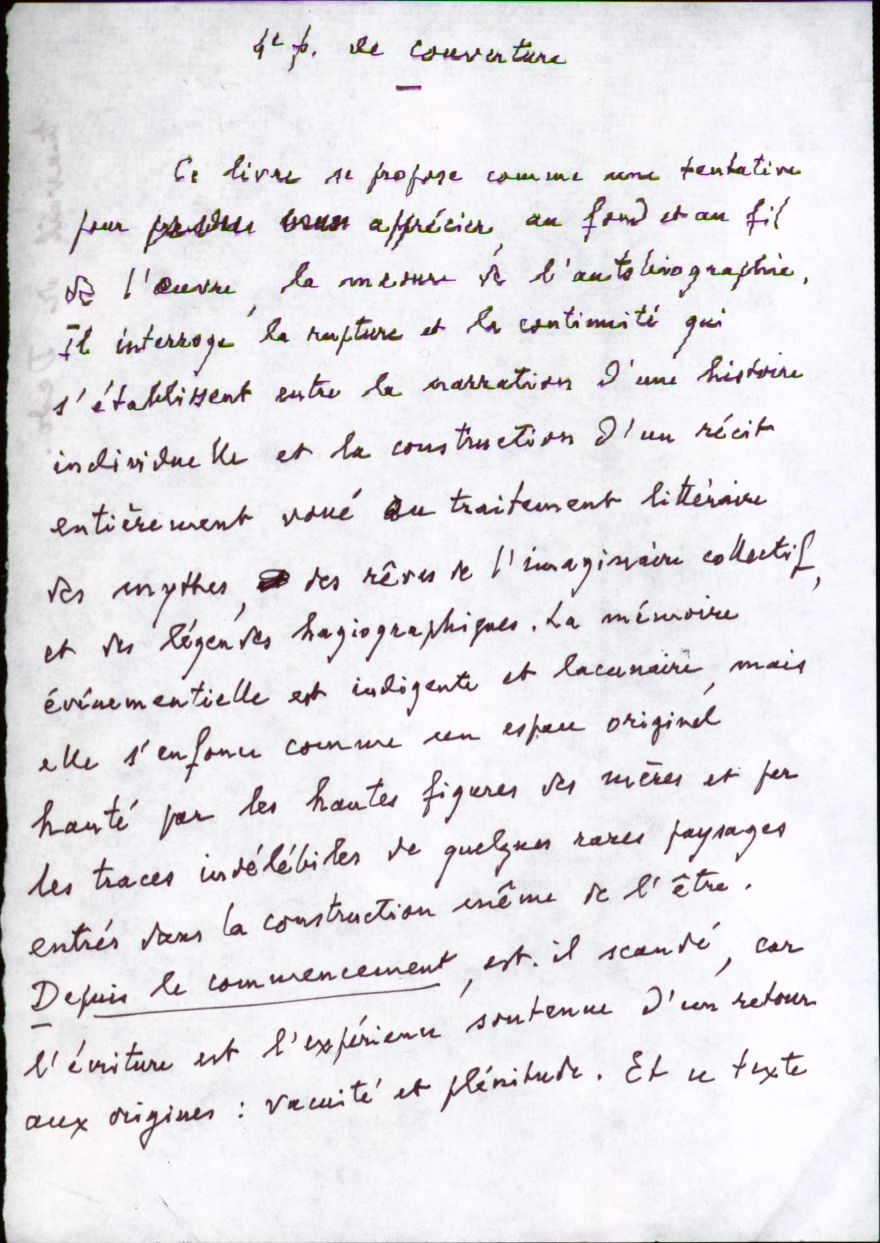 4e p. de couverture
Ce livre se propose comme une tentative
pour apprécier, au fond et au fil
de l'œuvre, la mesure de l'autobiographie.
Il interroge la rupture et la continuité qui
s'établissent entre la narration d'une histoire
individuelle et la construction d'un récit
entièrement voué au traitement littéraire
des mythes, des rêves de l'imaginaire collectif,
et des légendes hagiographiques. La mémoire
événementielle est indigente et lacunaire, mais
elle s'enfonce comme un espace originel
hanté par les hautes figures des mères et par
les traces indélébiles de quelques rares paysages
entrés dans la construction même de l'être.
Depuis le commencement, est-il scandé, car
l'écriture est l'expérience soutenue d'un retour
aux origines : vacuité et plénitude. Et ce texte